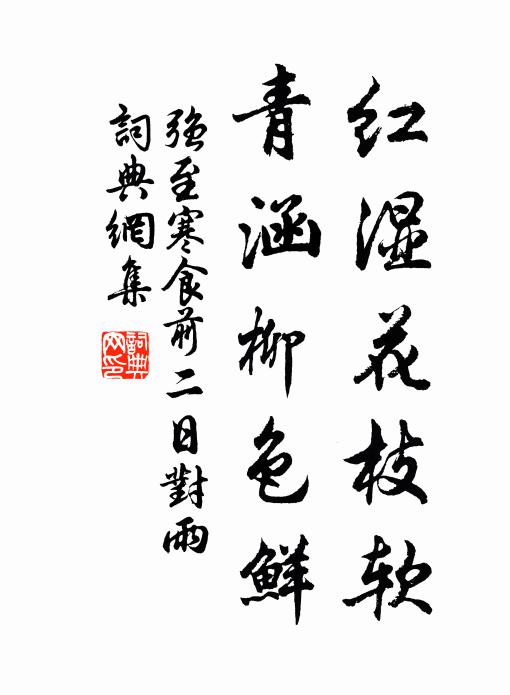 红湿花枝软
青涵柳色鲜
强至寒食前二日對雨
詞典網集
詞典网印